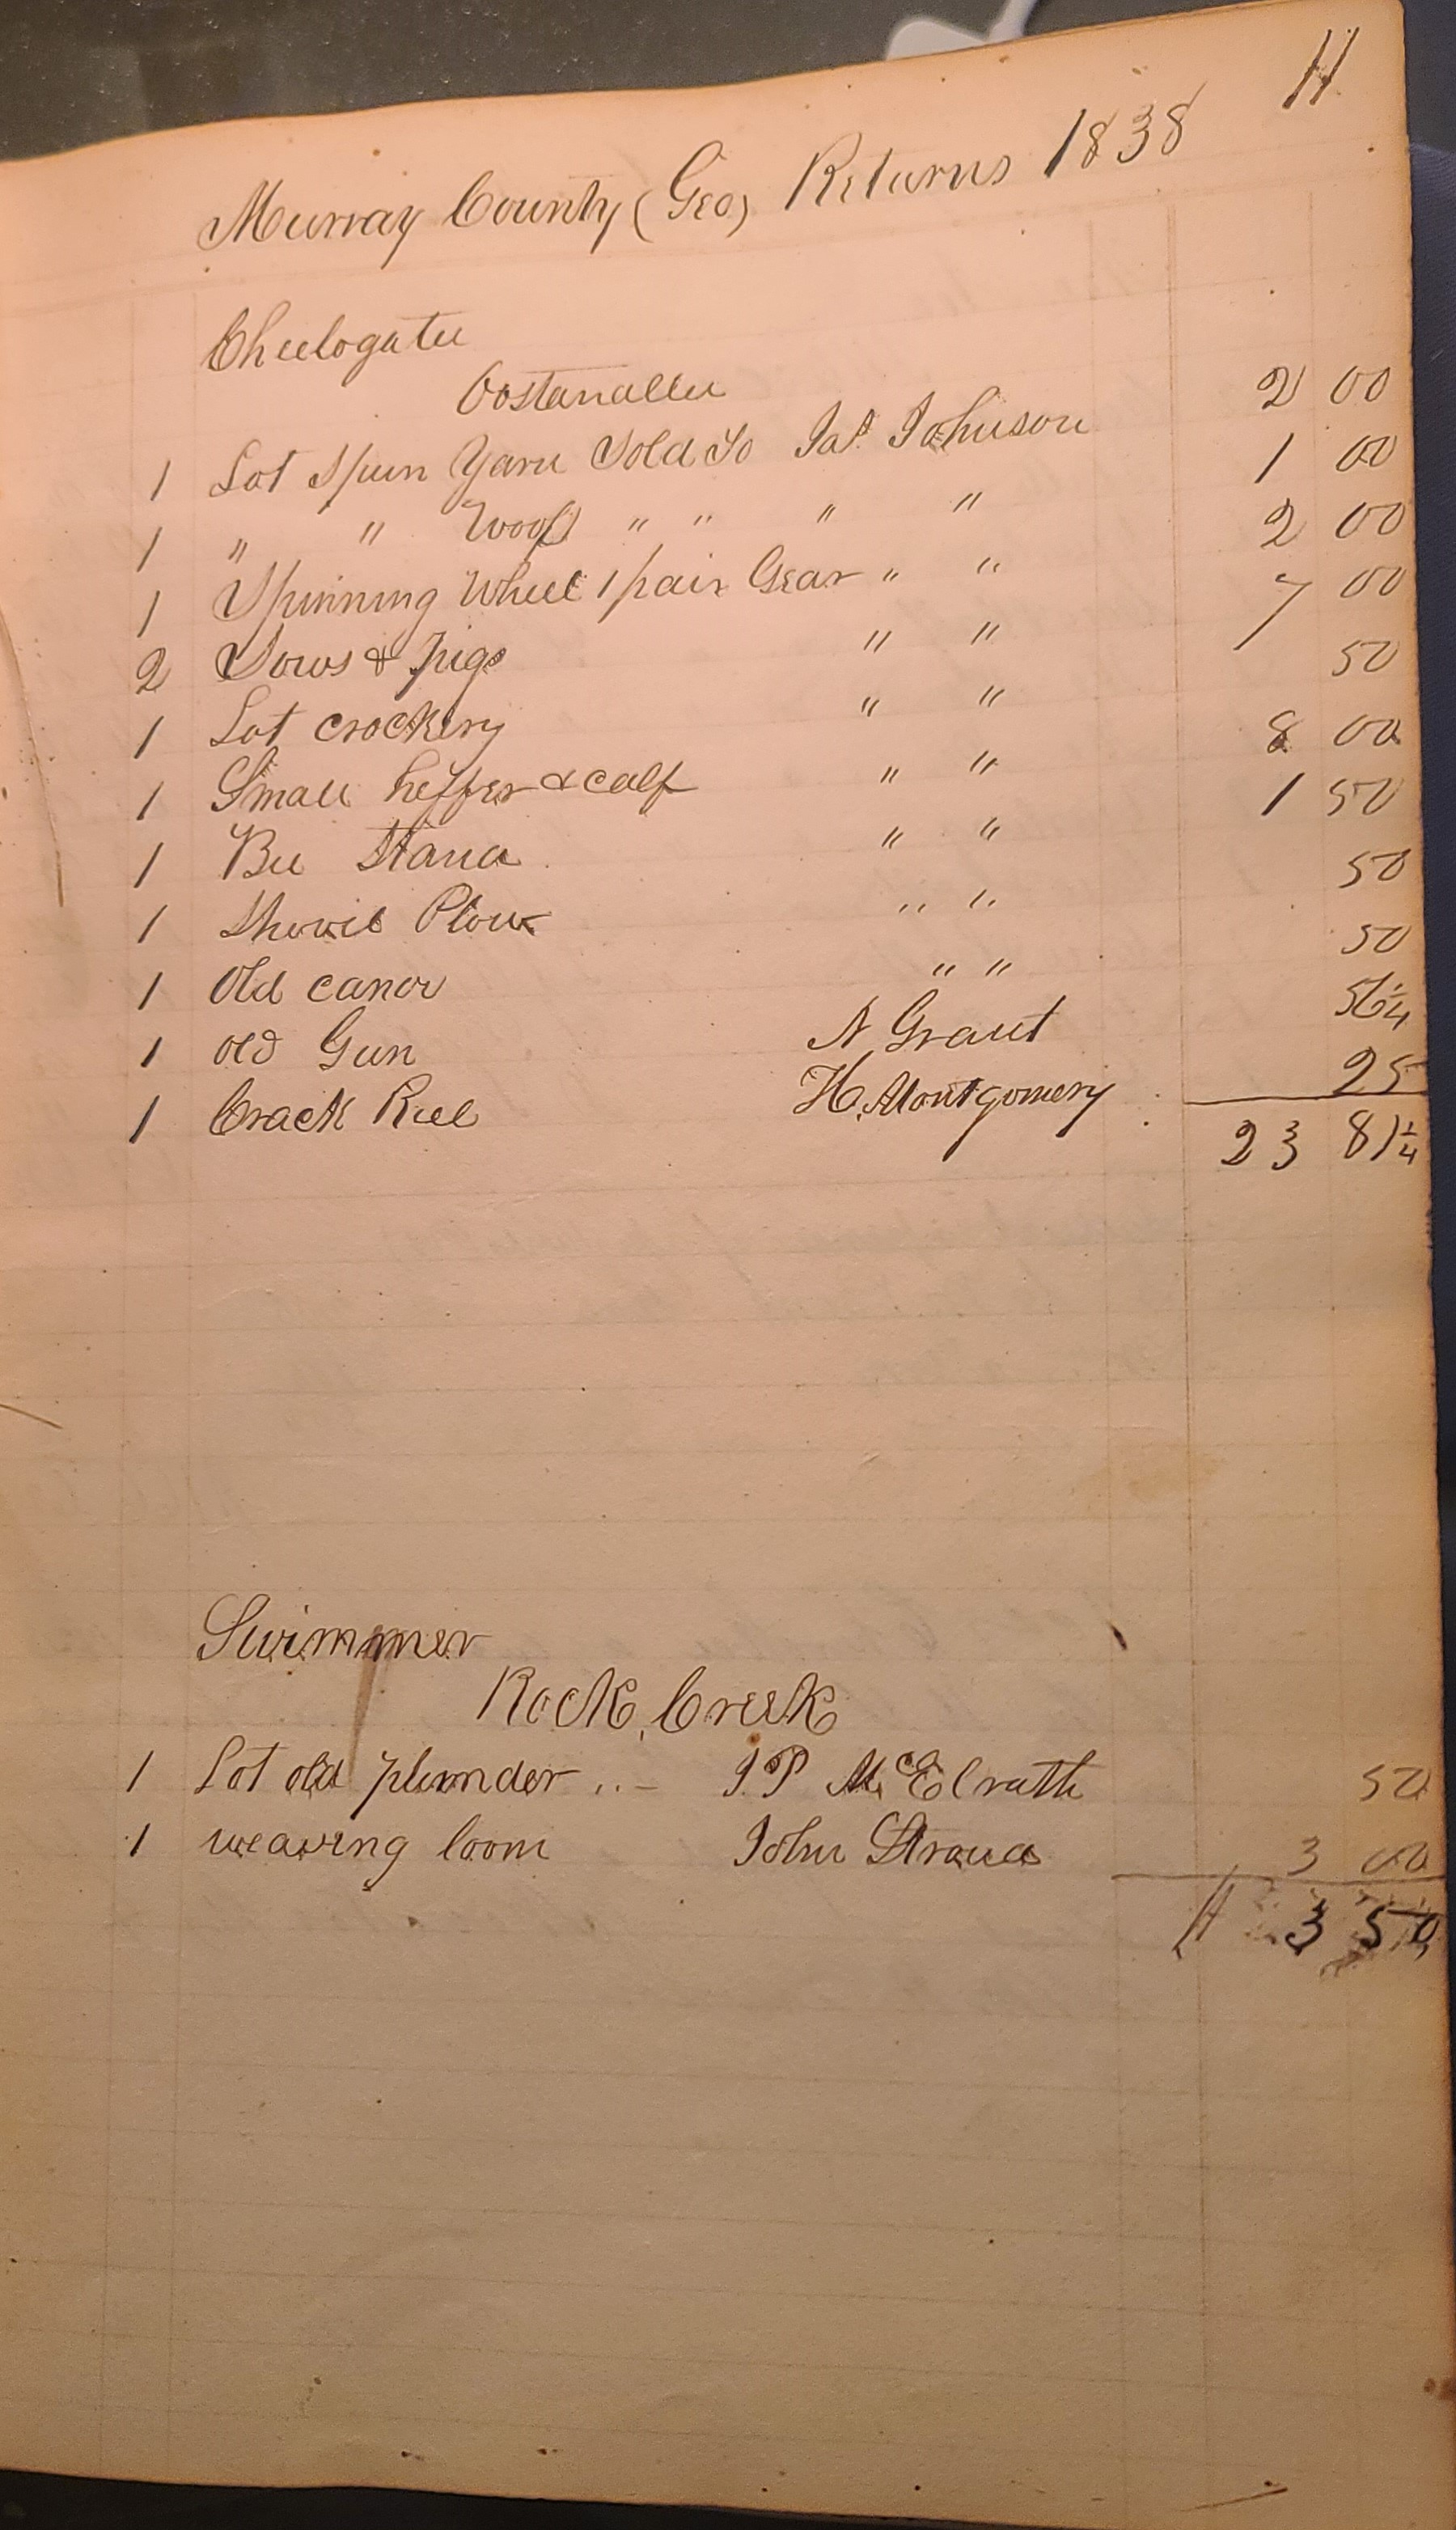 Murray County (Geo) Returns 1838
Cheelogatee
Oostanallee
1 Lot Spun Yarn Sold To Jas Johnson 2 00
1 " " Wool " " " " 1 00
1 Spinning Wheel 1 pair Gear " " 2 00
2 Sows & pigs " " 7 00
1 Lot crockery " " 50
1 Small heffer & calf " " 8 00
1 Bee Stand " " 1 50
1 Shovel Plow " " 50
1 Old canoe " " 50
1 old Gun N Grant 56¼
1 Crack Reel H. Montgomery 25
23 81¼
Swimmer
Rock Creek
1 Lot old plunder J. P McElrath 50
1 weaving loom John Stroud 3 00
3 50